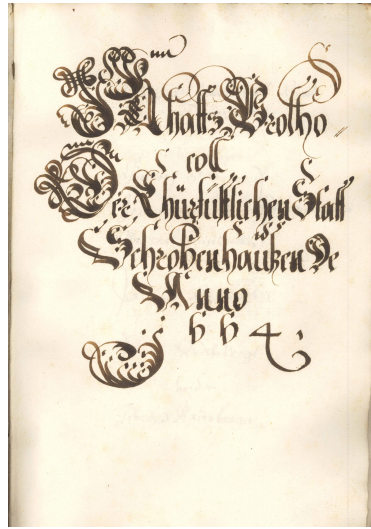 Rhatts Protho
coll
Der Churfürstlichen Statt
Schrobenhaußen De
Anno
1664.